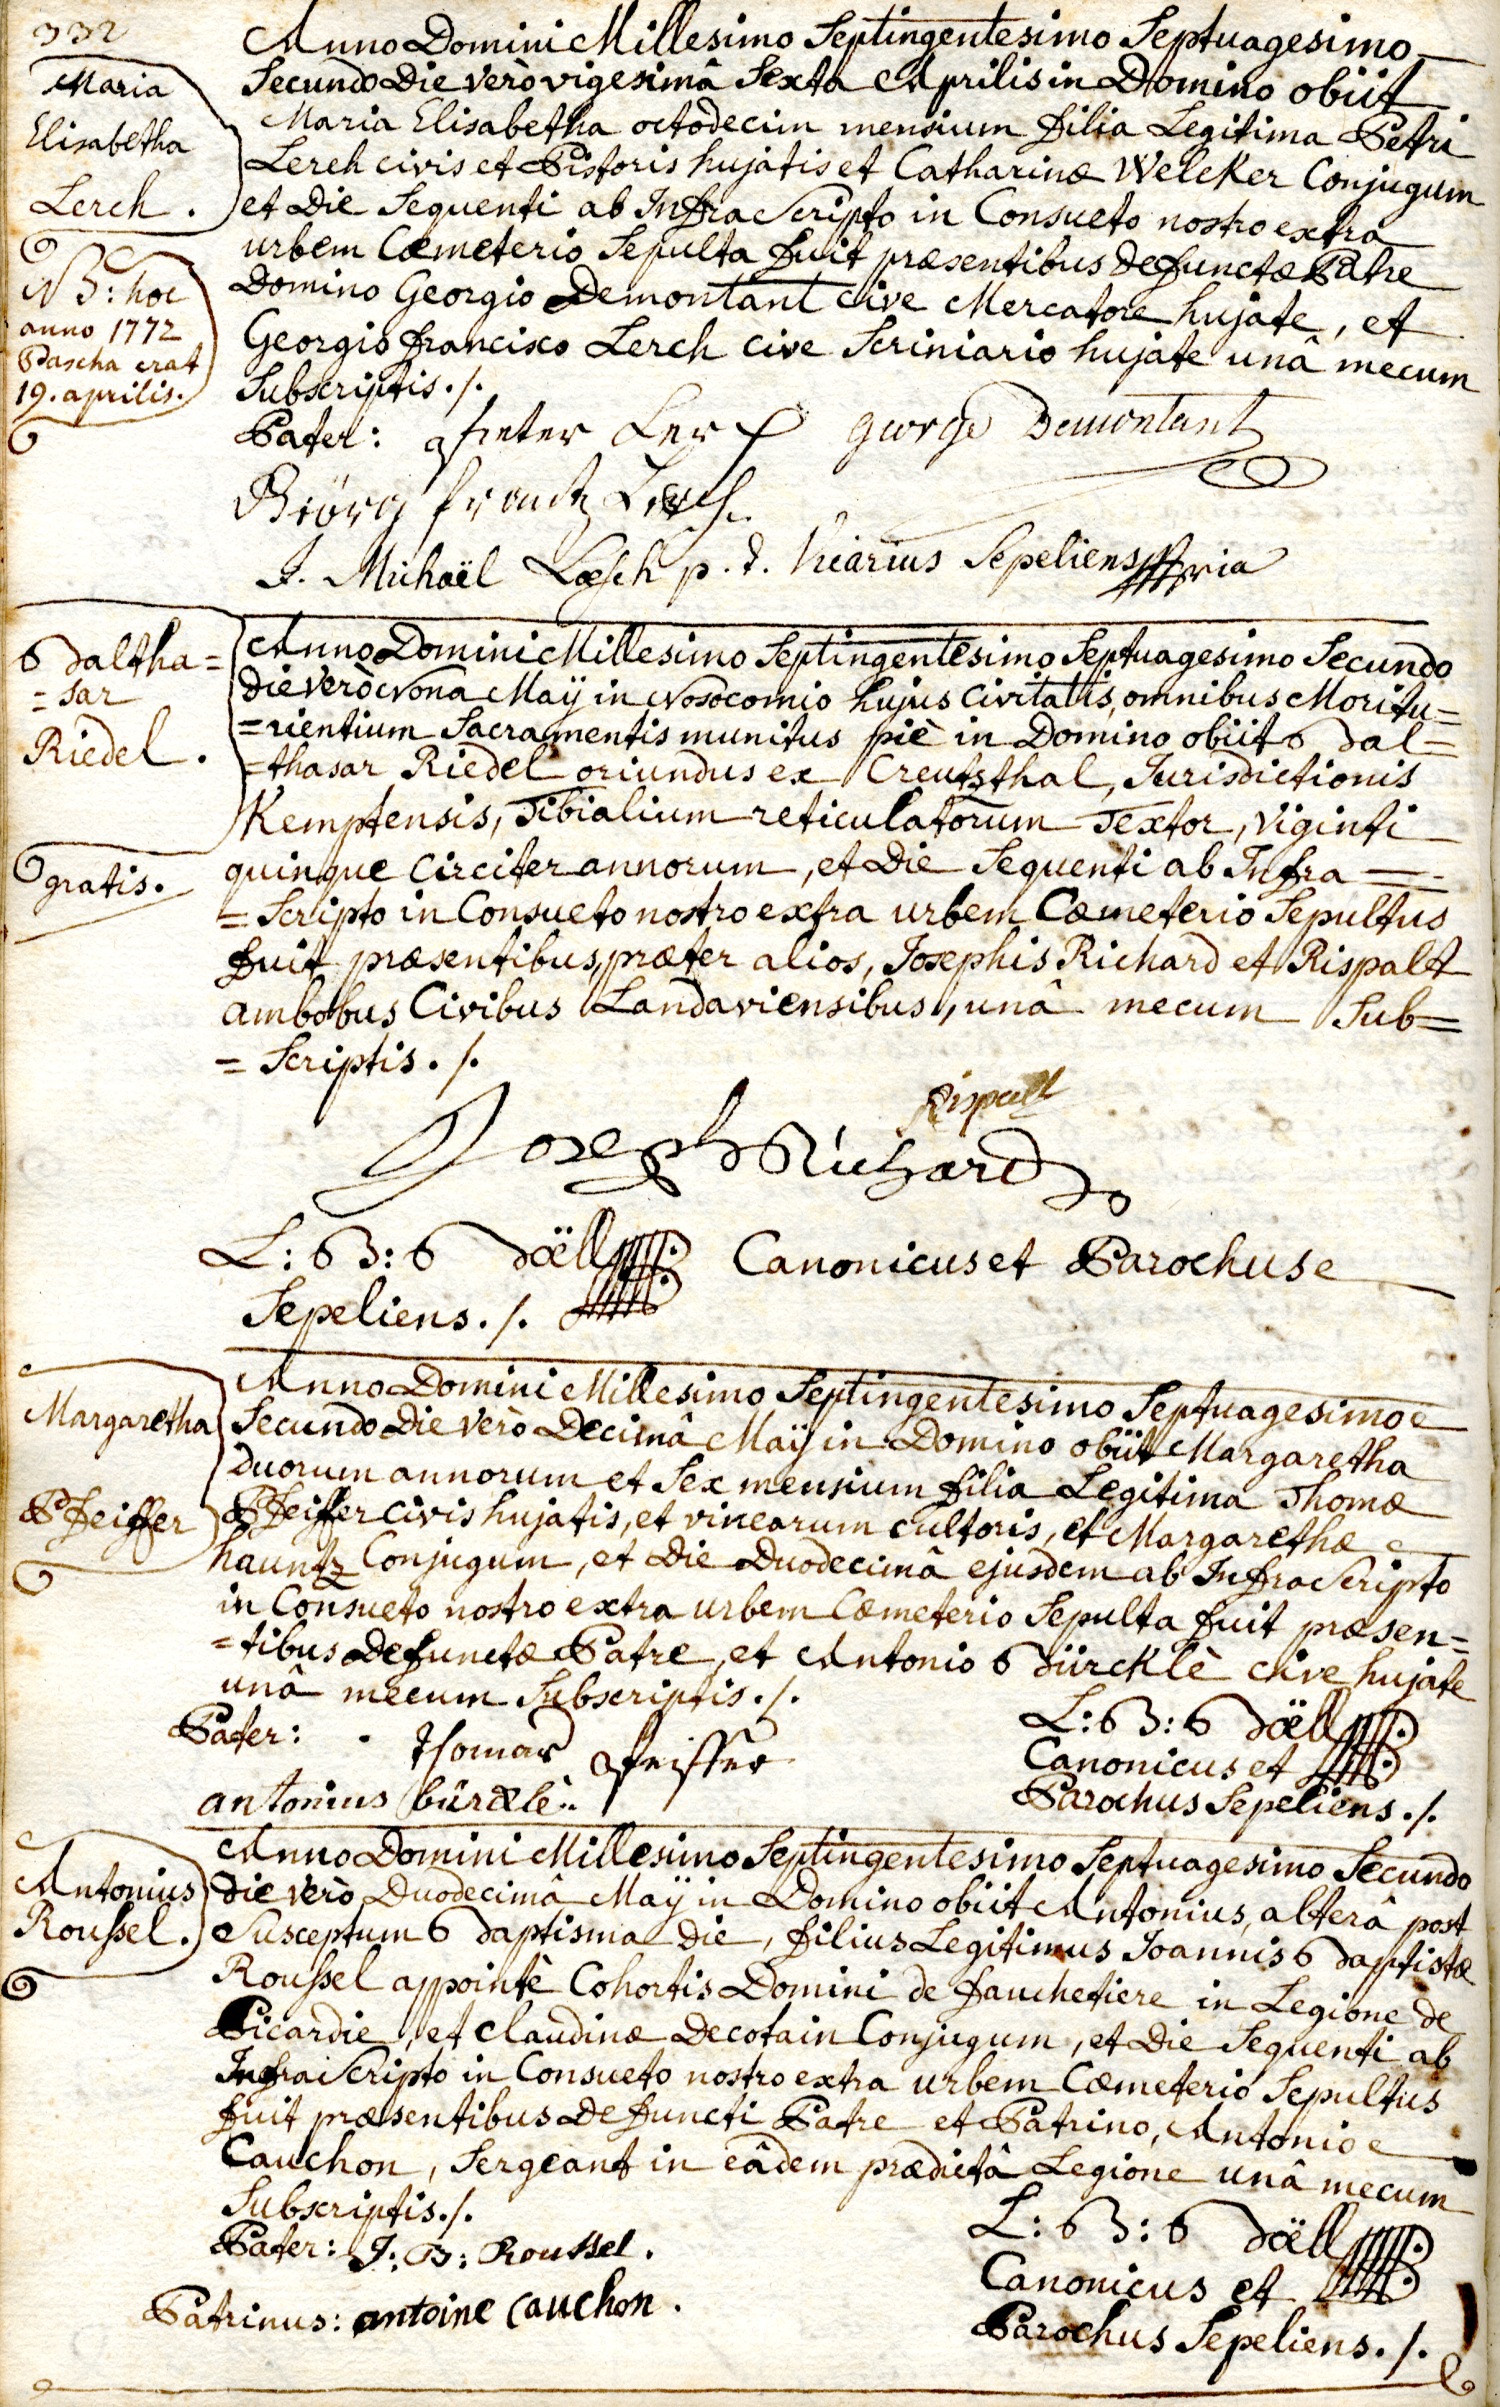 332
Maria
Elisabetha
Lerch.
Anno Domini Millesimo Septingentesimo Septuagesimo
Secundo Die verò vigesimâ Sexta Aprilis in Domino obiit
Maria Elisabetha octodecim mensium filia Legitima Petri
Lerch civis et Pistoris hujatis et Catharinæ Welcker Conjugum
et Die Sequenti ab Infra Scripto in Consueto nostro extra
urbem Cæmeterio Sepulta fuit præsentibus defunctæ Patre
Domino Georgio Demontant cive Mercatore hujate, et
Georgio francisco Lerch cive Scriniario hujate unâ mecum
Subscriptis ./.
NB: hoc
anno 1772
Pascha erat
19. aprilis.
Pater: Pieter Lerch george Demontant
Georg frantz Lerch
J. Michaël Loesch p. t. Vicarius Sepeliens mpria
Baltha=
=sar
Riedel.
gratis.
Anno Domini Millesimo Septingentesimo Septuagesimo Secundo
die verò Nona Maÿ in Nosocomio hujus Civitatis, omnibus Moritu=
=rientium Sacramentis munitus piè in Domino obiit Bal=
=thasar Riedel oriundus ex Creutsthal, Jurisdictionis
Kemptensis, Tibialium reticulatorum Textor, viginti
quinque Circiter annorum, et Die Sequenti ab Infra =
=Scripto in Consueto nostro extra urbem Cæmeterio Sepultus
fuit præsentibus, præter alios, Josephis Richard et Rispalt
ambobus Civibus Landaviensibus, unâ mecum Sub=
=Scriptis ./.
Rispalt
Joseph Richard
L: B: Boëll Canonicus et Parochus
Sepeliens ./.
Margaretha
Pfeiffer
Anno Domini Millesimo Septingentesimo Septuagesimo
Secundo Die Verò Decimâ Maÿ in Domino obiit Margaretha
duorum annorum et Sex mensium filia Legitima Thomæ
Pfeiffer civis hujatis, et vinearum cultoris, et Margarethæ
hauntz Conjugum, et Die Duodecimâ ejusdem ab Infra Scripto
in Consueto nostro extra urbem Cæmeterio Sepulta fuit præsen=
=tibus Defunctæ Patre, et Antonio Bürcklè cive hujate
unâ mecum Subscriptis ./.
Pater: Thomas Pfeiffer
antonius bürcklè
L: B: Boëll
Canonicus et
Parochus Sepeliens ./.
Antonius
Roussel.
Anno Domini Millesimo Septingentesimo Septuagesimo Secundo
die verò Duodecimâ Maÿ in Domino obiit Antonius, alterâ post
Susceptum Baptisma Die, filius Legitimus Joannis Baptistæ
Roussel appointè Cohortis Domini de fauchetiere in Legione de
Picardie, et Claudinæ Decotain Conjugum, et Die Sequenti ab
Infra Scripto in Consueto nostro extra urbem Cæmeterio Sepultus
fuit præsentibus Defuncti Patre et Patrino, Antonio
Cauchon, Sergeant in eâdem prædictâ Legione unâ mecum
Subscriptis ./.
Pater: J: B: Roussel.
Patrinus: antoine Cauchon.
L: B: Boëll
Canonicus et
Parochus Sepeliens ./.